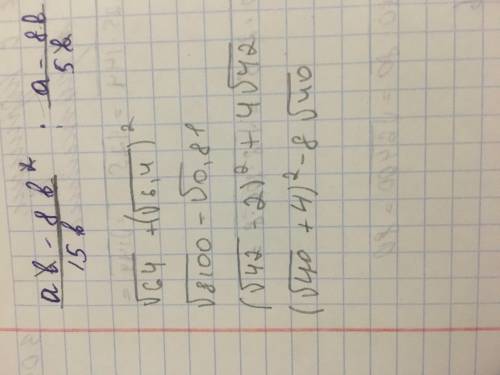 (ab - 8b²)/(15b) : (a - 8b)/(5b)
√64 + (√6,4)²
√8100 - √0,81
(√42 - 2)² + 4√42
(√40 + 4)² - 8√40